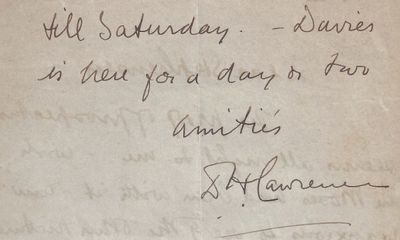 till Saturday. – Davies
is here for a day or two
amitiés
D. H. Lawrence